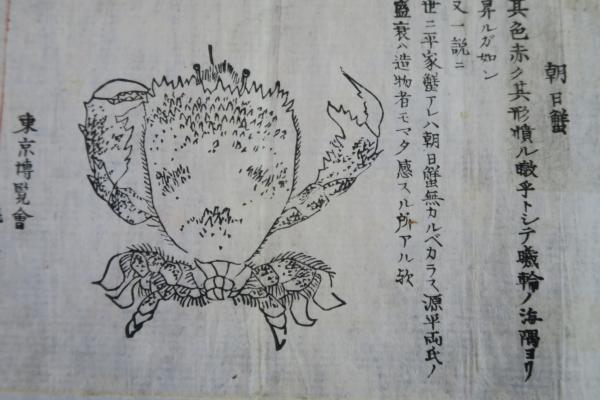 朝日蟹
其色赤ク其形憤ル暾乎トシテ曦輪ノ海隅ヨリ
昇ルガ如シ
又一説ニ
世ニ平家蟹アレハ朝日蟹無カルベカラス源平両氏ノ
盛衰ハ造物者モマタ感スル所アル歟
東京博覧會